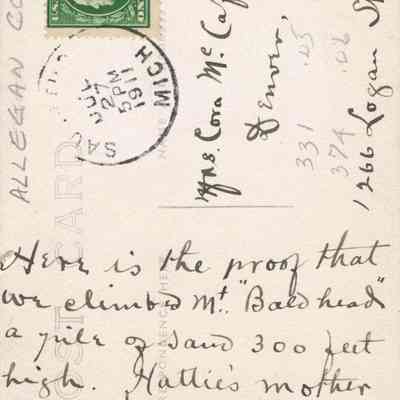 ALLEGAN CO
JUL
27
5 PM
1911
MICH
Mrs. Cora Mc Caf
Denver,
1266 Logan St
331 .05
374 .06
POST CARD
CORRESPONDENCE HERE
Here is the proof that
we climbed Mt. "Baldhead"
a pile of sand 300 feet
high. Hattie's mother